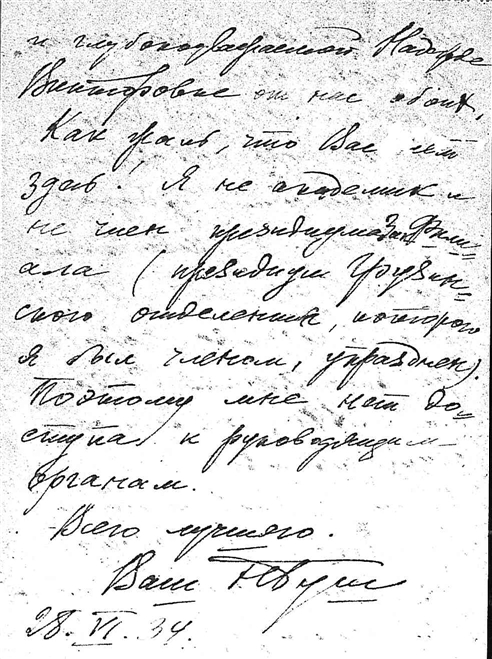 и глубокоуважаемой Надежде
Викторовне от нас обоих.
Как жаль, что Вас нет
здесь! Я не академик и
не член президиума Зак Фили-
ала (президиум Грузин-
ского отделения, которого
я был членом, упразднен).
Поэтому мне нет до-
ступа к руководящим
органам.
Всего лучшего.
Ваш
28. VI. 34.